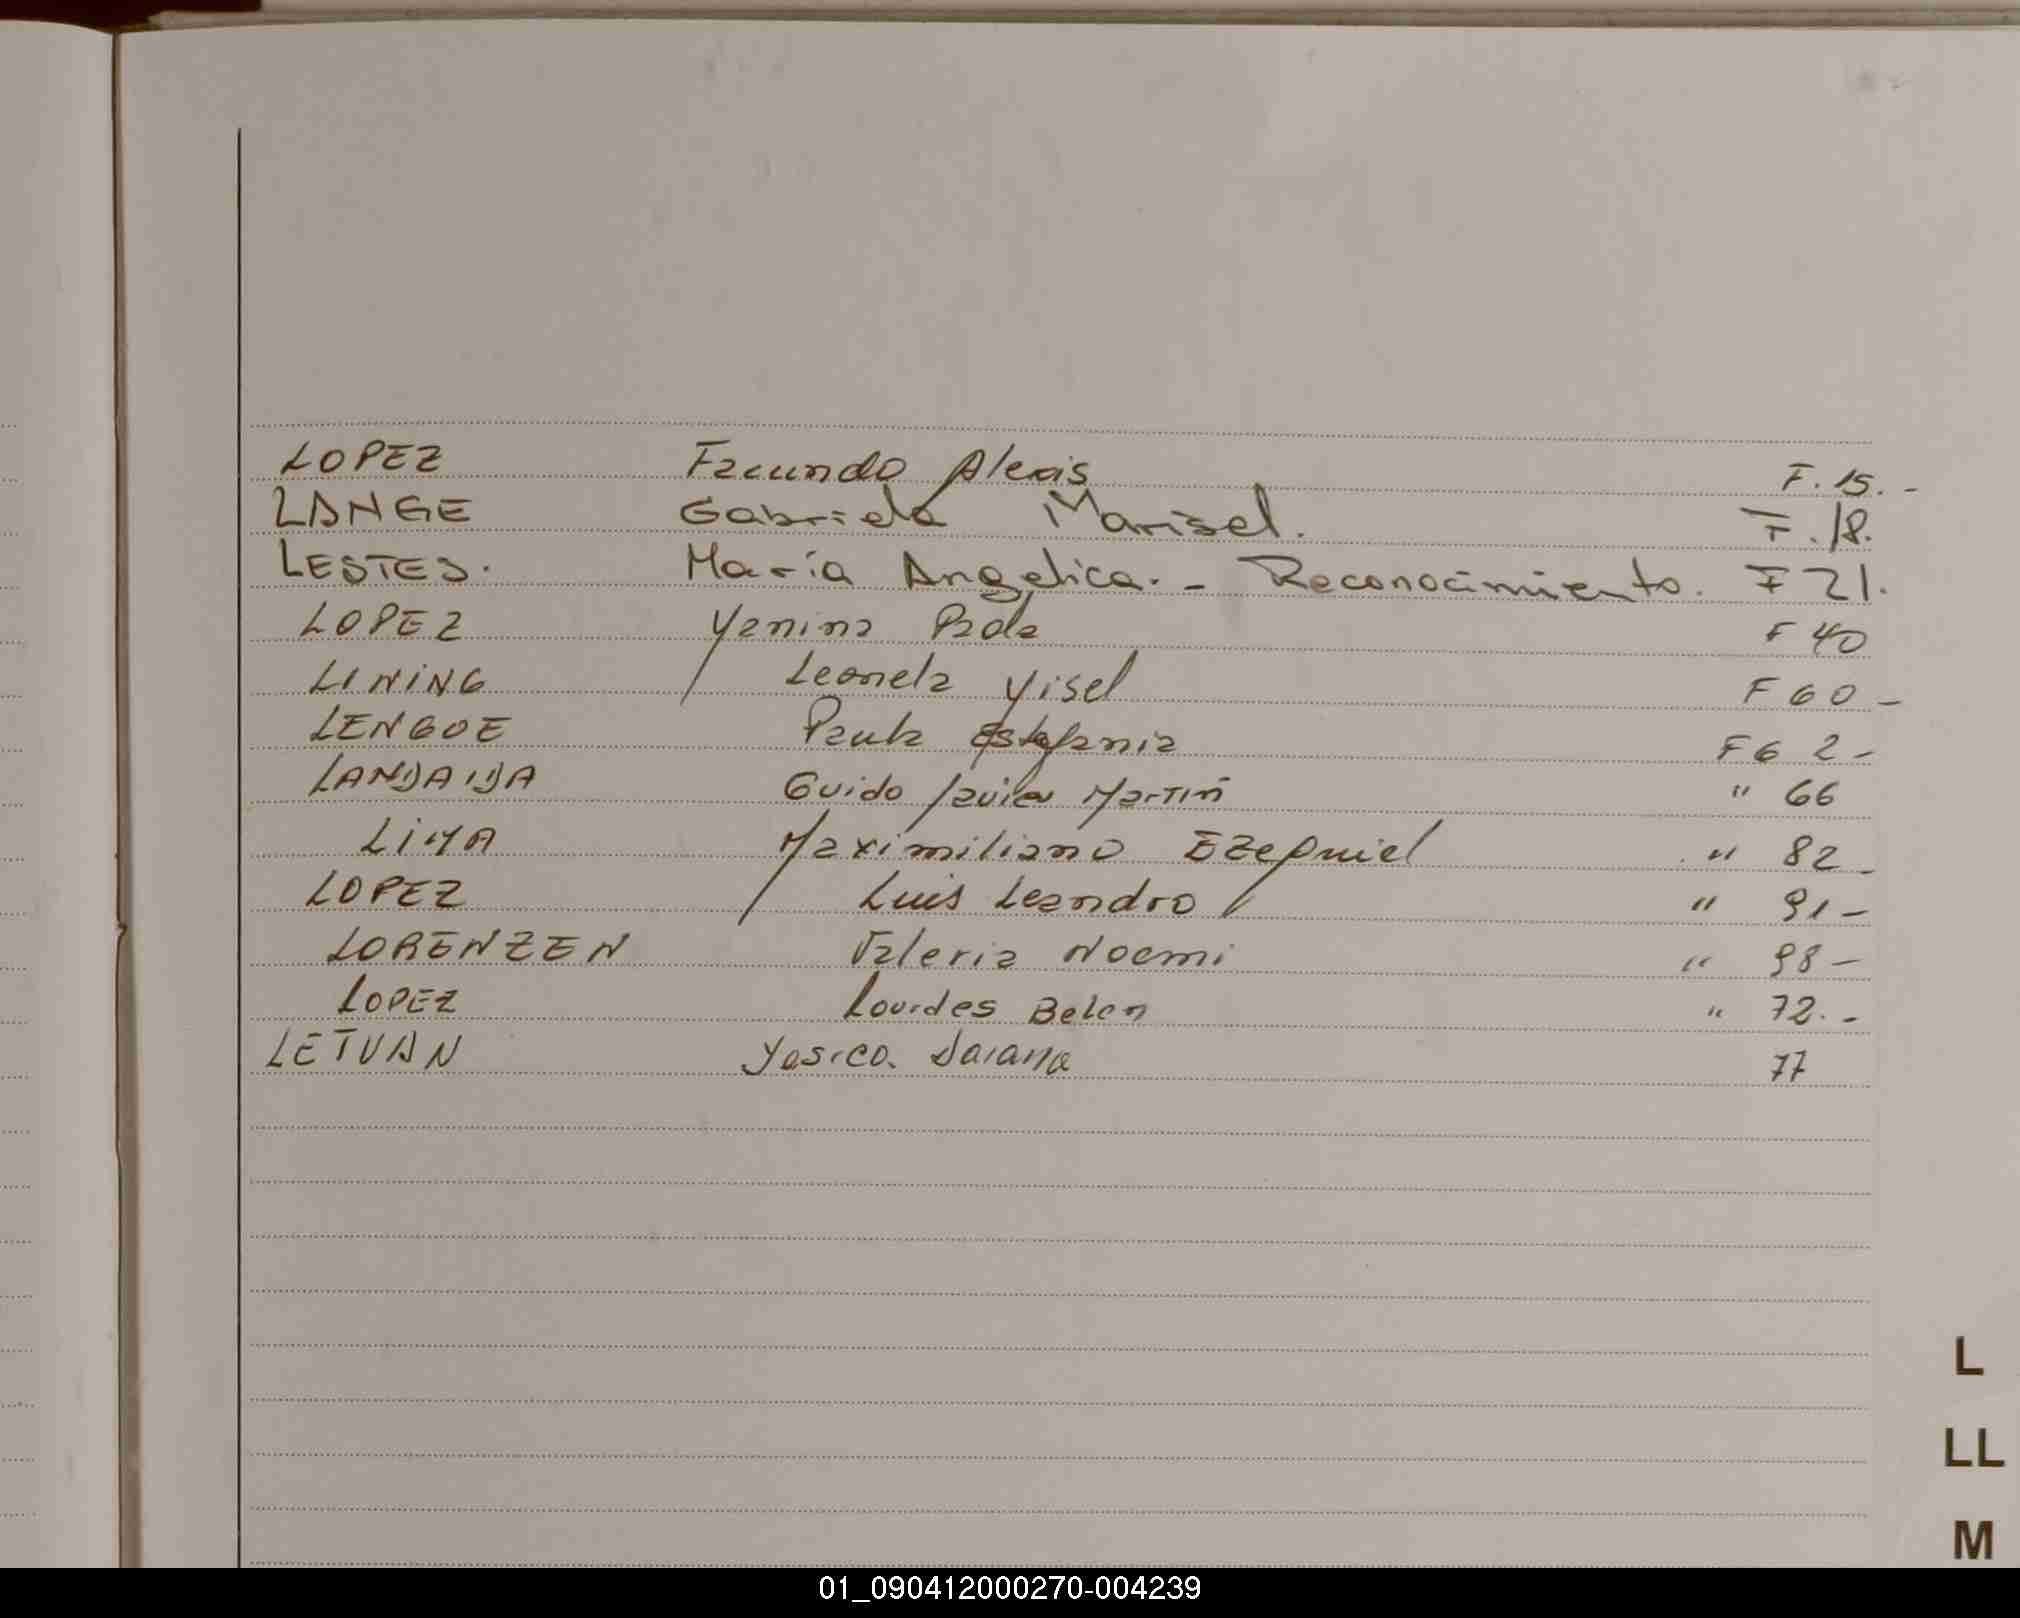 LOPEZ Facundo Alexis F. 15. -
LANGE Gabriela Marisel. F. 18.
LESTES. María Angelica. - Reconocimiento. F 21.
LOPEZ Yanina Paola F 40
LINING Leonela Yisel F 60 -
LENGOE Paula Estefania F 62 -
LANDAIDA Guido Javier Martín " 66
LIMA Maximiliano Ezequiel " 82 -
LOPEZ Luis Leandro " 91 -
LORENZEN Valeria Noemi " 98 -
LOPEZ Lourdes Belen " 72. -
LETVAN Yesica Daiana 77
L
LL
M
01_090412000270-004239